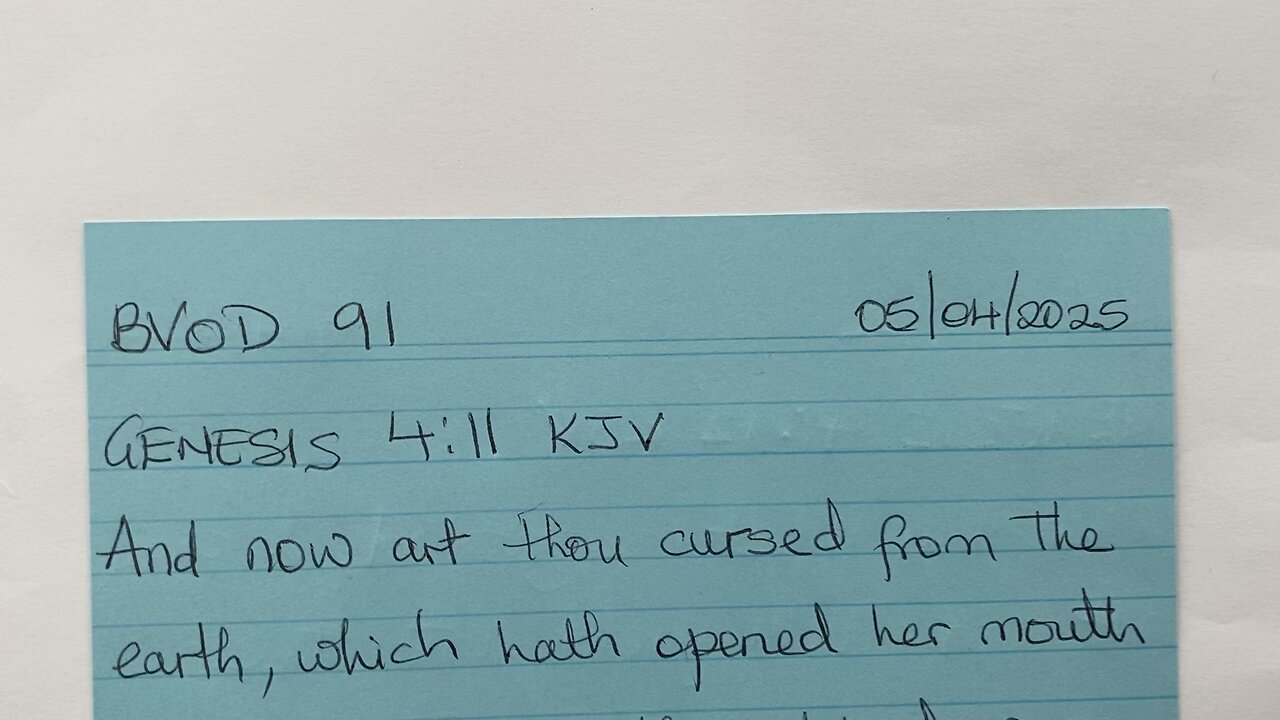 BVOD 91 05/04/2025
GENESIS 4:11 KJV
And now art thou cursed from the
earth, which hath opened her mouth